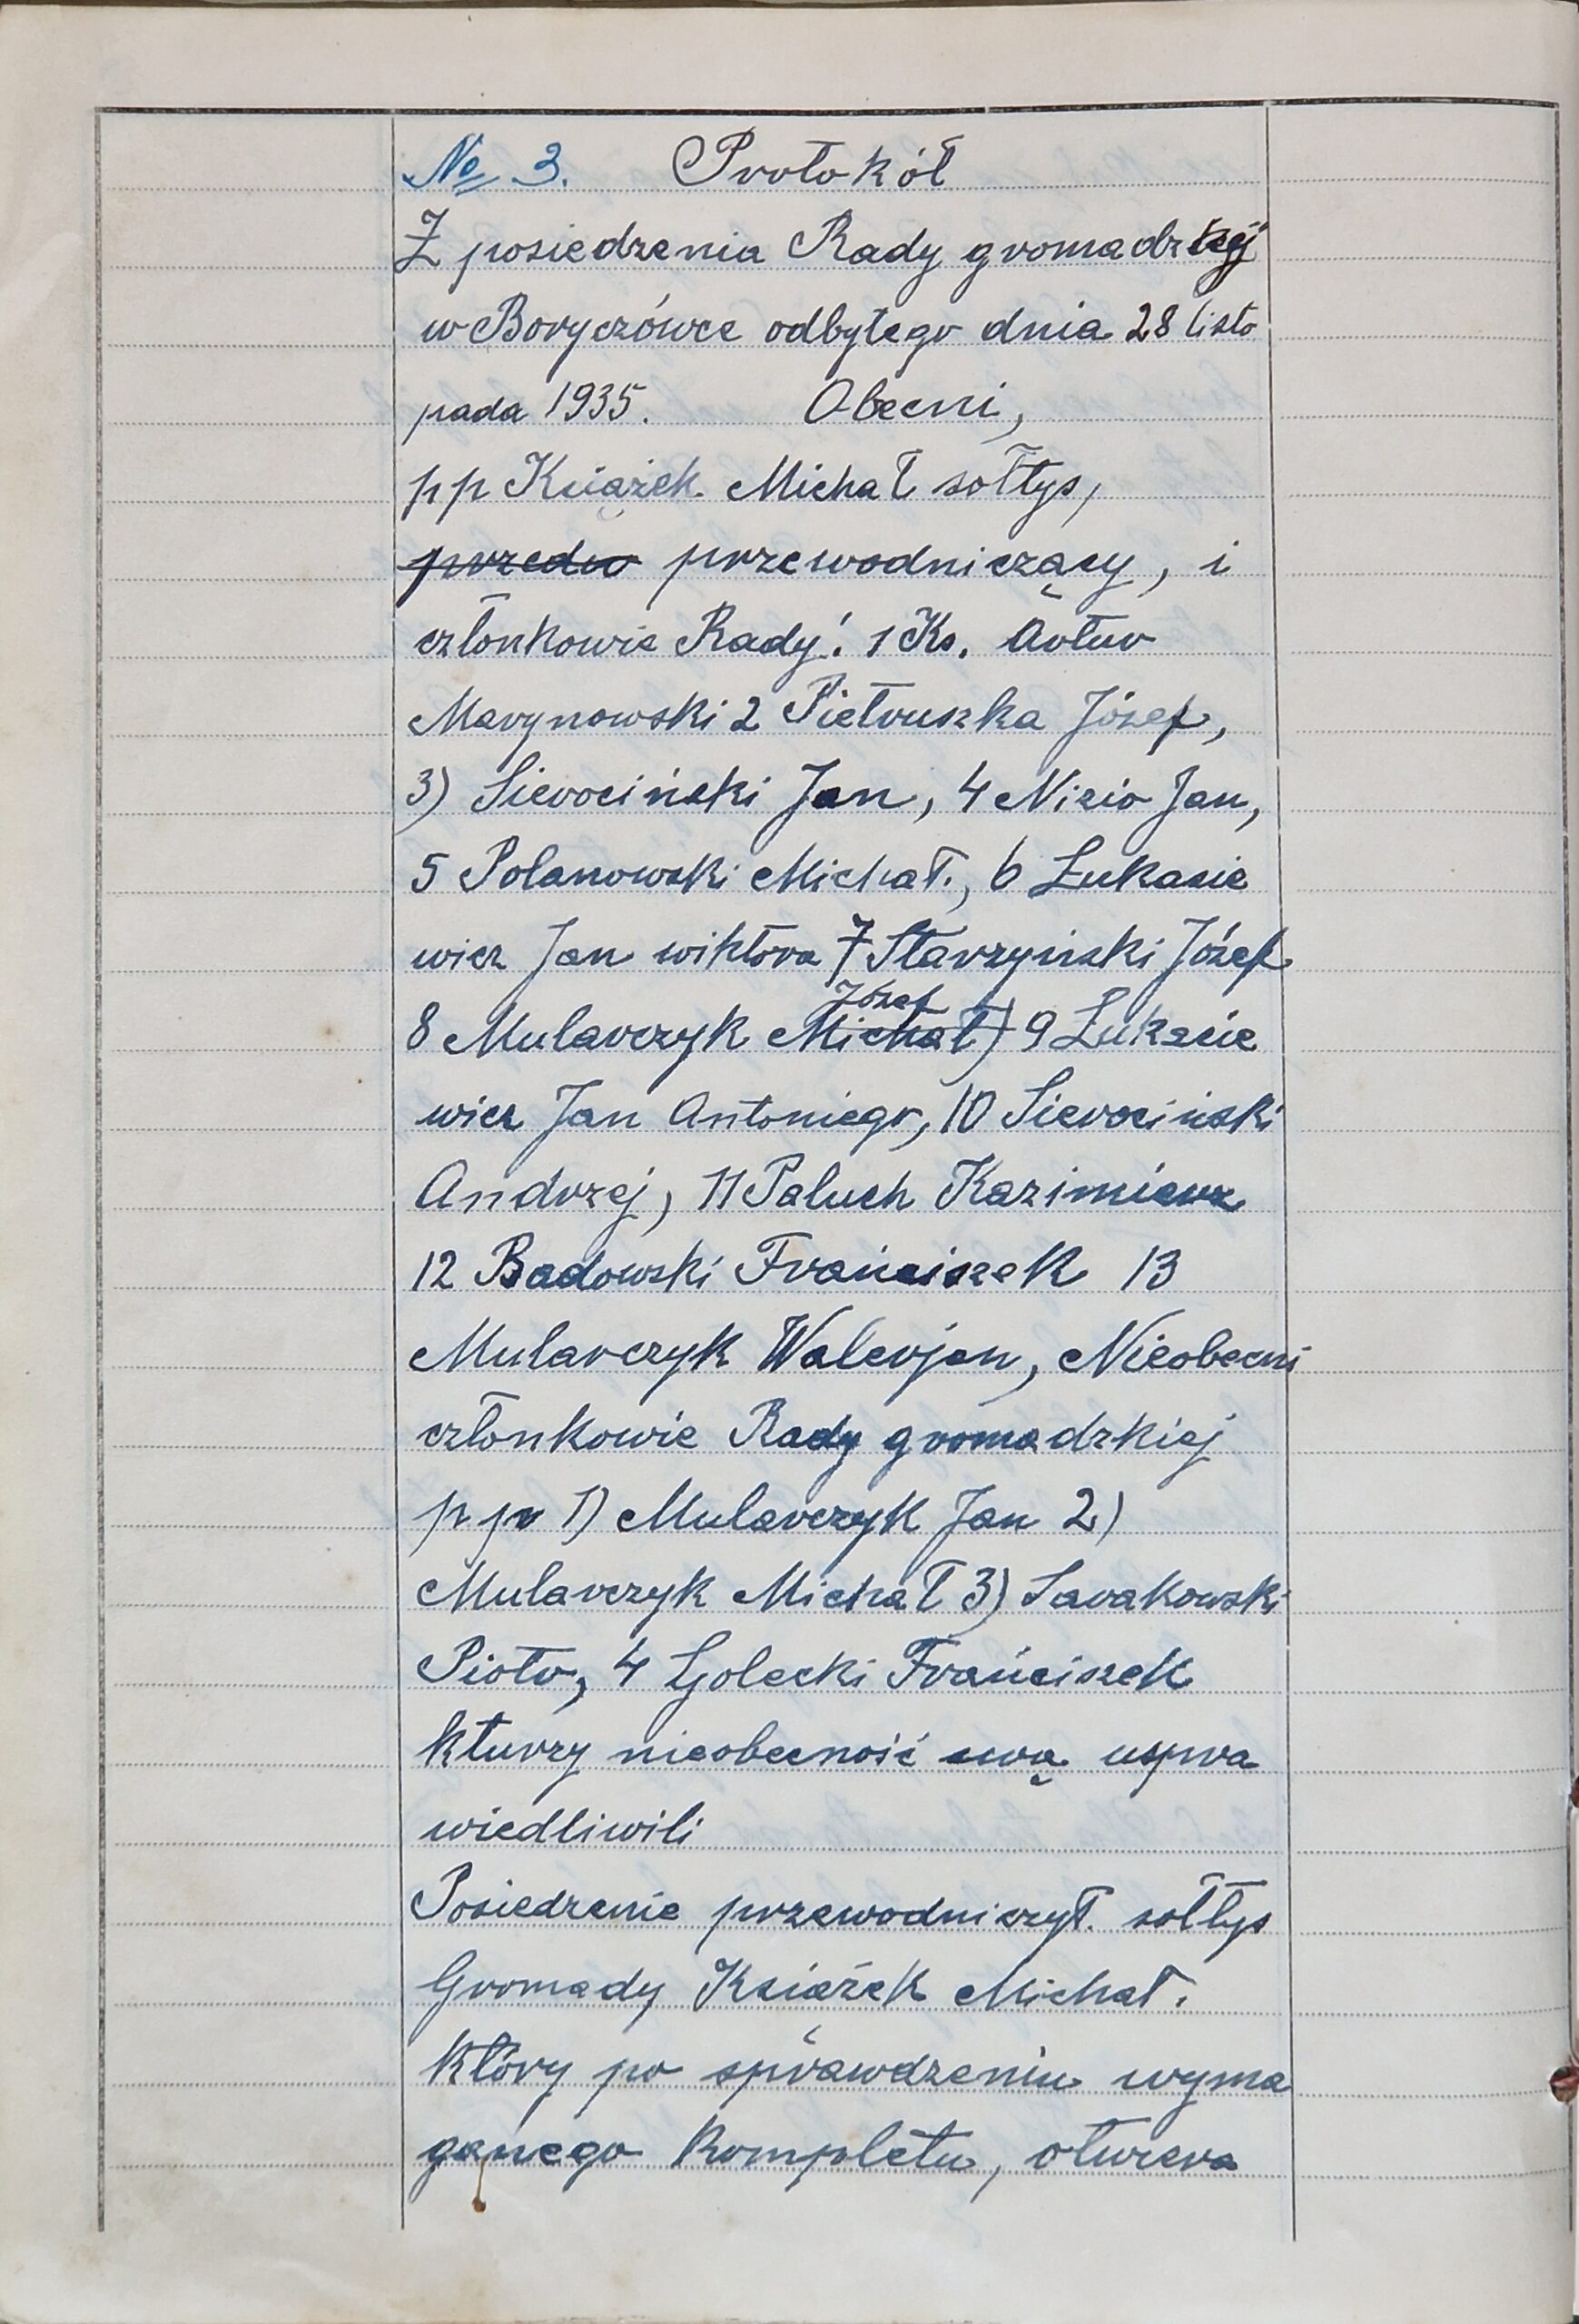 No 3. Protokół
Z posiedzenia Rady gromadzkej
w Boryczówce odbytego dnia 28 listo
pada 1935. Obecni,
pp Książek Michał sołtys,
przedw przewodniczący, i
członkowie Rady: 1 Ks. Artur
Marynowski 2 Pietruszka Józef,
3) Sierociński Jan, 4 Nizio Jan,
5 Polanowski Michał., 6 Łukasie
wicz Jan wiktora 7 Starzyński Józef
8 Mularczyk Michał Józef) 9 Łukasie
wicz Jan Antoniego, 10 Sierociński
Andrzej, 11 Paluch Kazimierz
12 Badowski Frańciszek 13
Mularczyk Walerjan, Nieobecni
członkowie Rady gromadzkiej
pp 1) Mularczyk Jan 2)
Mularczyk Michał 3) Sarakowski
Piotr, 4 Golecki Frańciszek
kturzy nieobecność swą uspra
wiedliwili
Posiedzenie przewodniczył. sołtys
Gromady Książek Michał.
który po sprawdzeniu wyma
ganego kompletu, otwiera